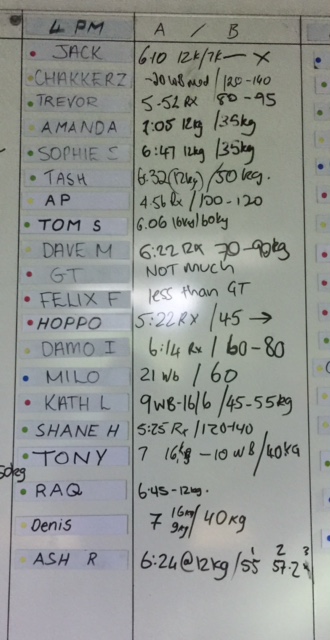 4 PM A / B
JACK 6:10 12k/7k — X
CHAKKERZ -20 WB med / 120-140
TREVOR 5-52 Rx 80-95
AMANDA 7:05 12kg /35kg
SOPHIE S 6:47 12kg /35kg
TASH 6:32 (12kg) /50 kg.
AP 4.56 Rx /100-120
TOM S 6.06 16kg/60kg
DAVE M 6:22 Rx 70-90kg
GT NOT Much
FELIX F less than GT
HOPPO 5:22 RX /45 →
DAMO I 6:14 Rx / 60-80
MILO 21 Wb / 60
KATH L 9WB-16/6 /45-55kg
SHANE H 5:25 Rx /120-140
TONY 7 16kg -10 WB /40KG
50kg
RAQ 6:45-12kg.
Denis 7 16kg 9kg / 40kg
ASH R 6:24@12kg / 55 57.2